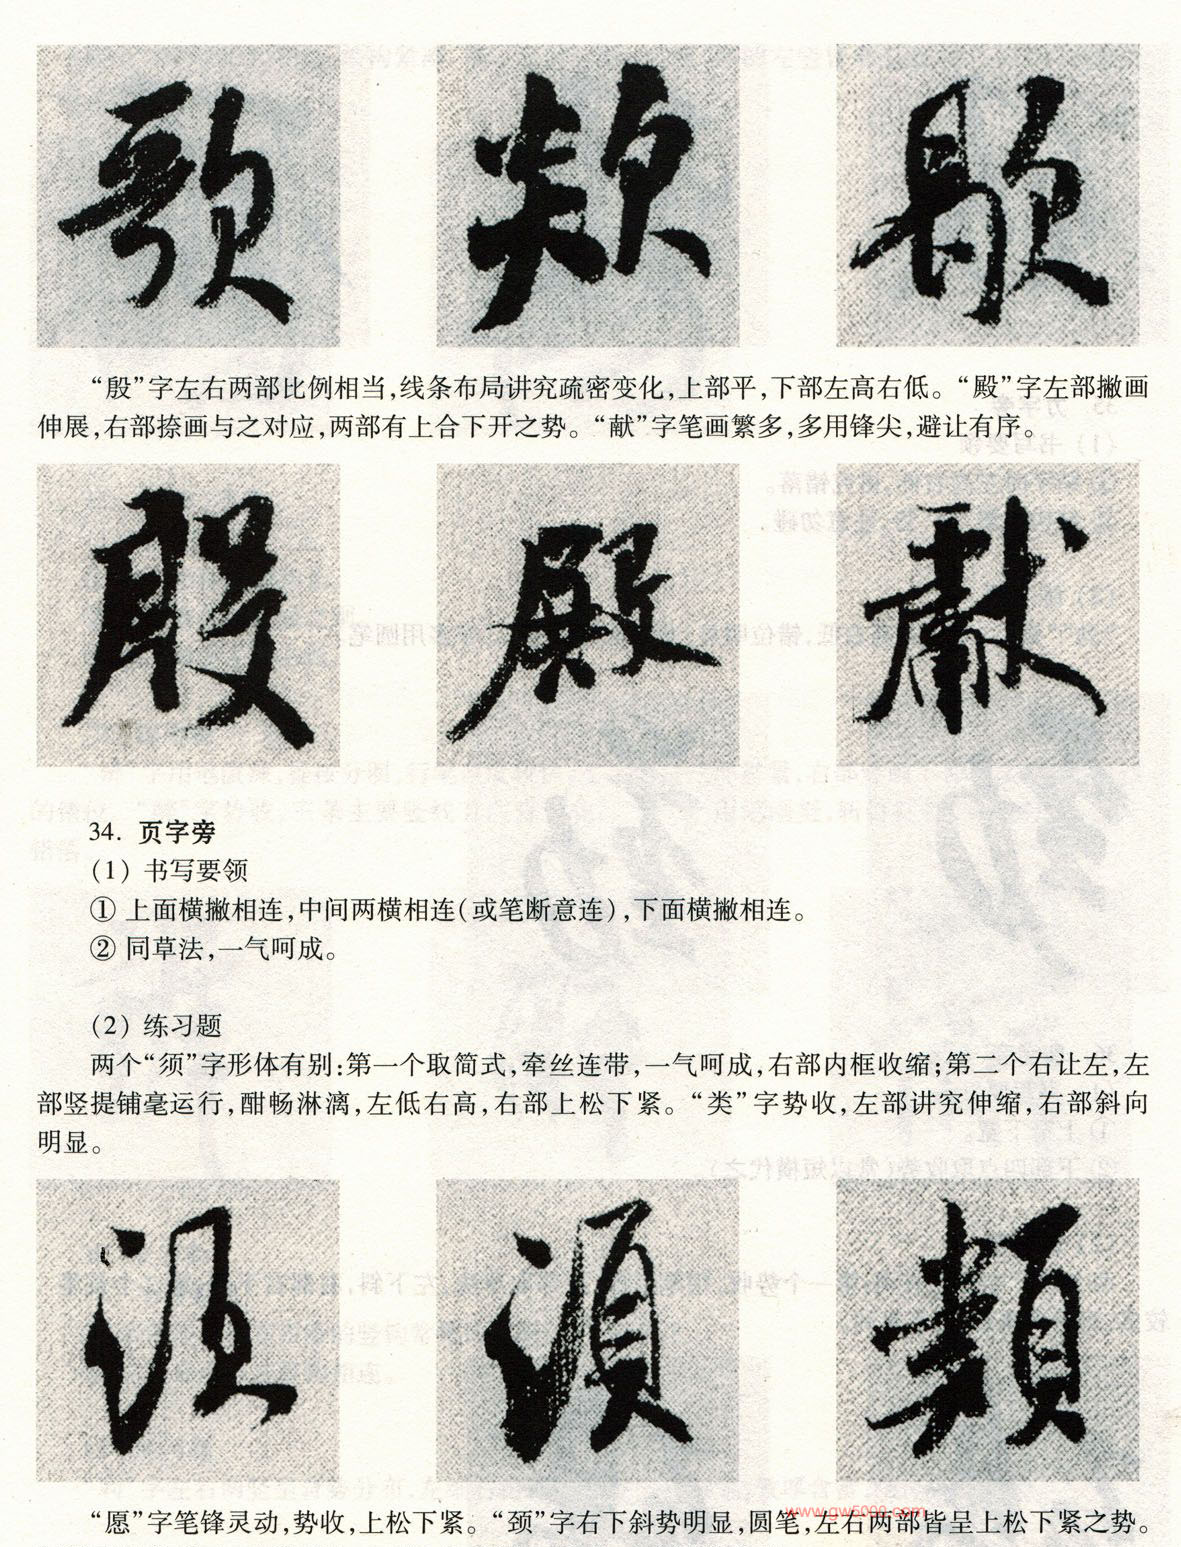 歌 欻 歇
“殷”字左右两部比例相当,线条布局讲究疏密变化,上部平,下部左高右低。“殿”字左部撇画
伸展,右部捺画与之对应,两部有上合下开之势。“献”字笔画繁多,多用锋尖,避让有序。
殷 殿 獻
34. 页字旁
(1) 书写要领
① 上面横撇相连,中间两横相连(或笔断意连),下面横撇相连。
② 同草法,一气呵成。
(2) 练习题
两个“须”字形体有别:第一个取简式,牵丝连带,一气呵成,右部内框收缩;第二个右让左,左
部竖提铺毫运行,酣畅淋漓,左低右高,右部上松下紧。“类”字势收,左部讲究伸缩,右部斜向
明显。
须 須 類
www.gw5000.com
“愿”字笔锋灵动,势收,上松下紧。“颈”字右下斜势明显,圆笔,左右两部皆呈上松下紧之势。